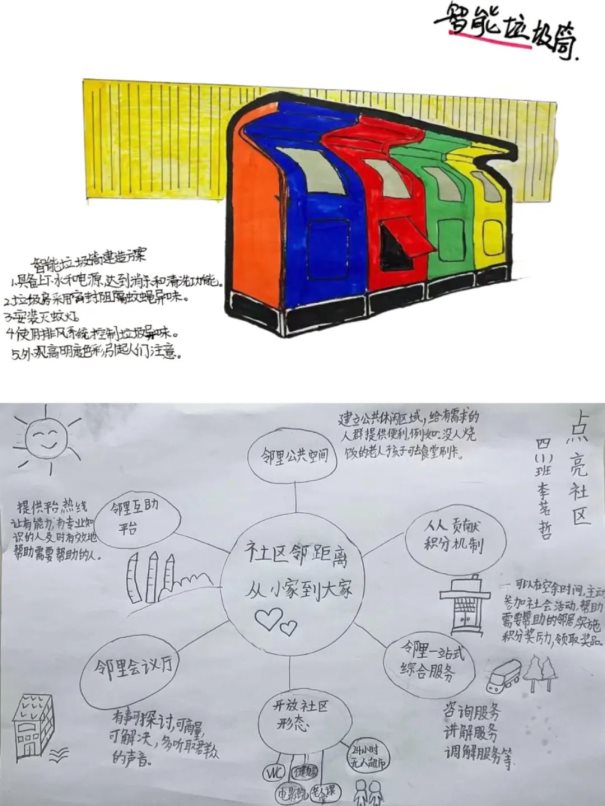 智能垃圾筒.
智能垃圾筒建造方案
1.具备上下水和电源,达到消杀和清洗功能。
2.垃圾房采用密封阻隔蚊蝇异味。
3.安装灭蚊灯
4.使用排风系统控制垃圾异味。
5.外观高明度色彩引起人们注意。
点亮社区
四(1)班 李茗哲
建立公共休闲区域,给有需求的
人群提供便利,例如:没人烧
饭的老人孩子可去食堂刷卡。
邻里公共空间
提供平台,热线
让有能力,有专业知
识的人及时有效地
帮助需要帮助的人。
邻里互助
平台
人人贡献
积分机制
一可以有空余时间,主动
参加社会活动,帮助
需要帮助的邻居,实施
积分奖励,领取奖品。
社区邻距离
从小家到大家
邻里会议厅
有事可探讨,可商量,
可解决,多听取群众
的声音。
邻里一站式
综合服务
咨询服务
讲解服务
调解服务等
开放社区
形态
WC
健身
电影院
老人课堂
24小时
无人超市